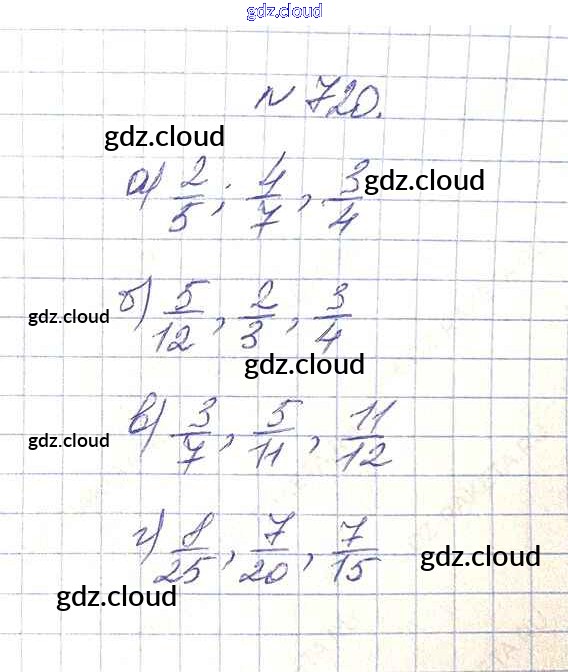 gdz.cloud
N 720.
gdz.cloud
а) 2/5; 4/7, 3/4
gdz.cloud
б) 5/12, 2/3, 3/4
gdz.cloud
gdz.cloud
в) 3/7, 5/11, 11/12
gdz.cloud
г) 8/25, 7/20, 7/15
gdz.cloud
gdz.cloud